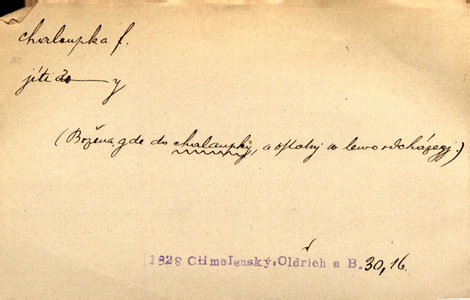 chaloupka f.
jíti do —— y
(Božena gde do chaloupky, a ostatnj w lewo odcházegj.)
1828 Chmelenský, Oldřich a B. 30, 16.